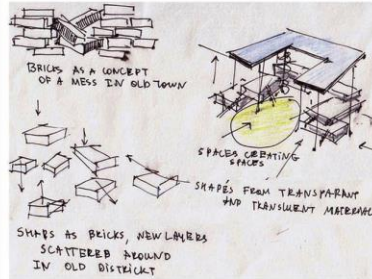 BRICKS AS A CONCEPT
OF A MESS IN OLD TOWN
SPACES CREATING
SPACES
SHAPES FROM TRANSPARANT
AND TRANSLUENT MATERIAL
SHAPS AS BRICKS, NEW LAYERS
SCATTERED AROUND
IN OLD DISTRICKT